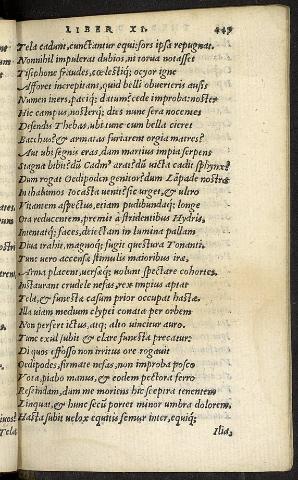 LIBER XI. 447
Tela cadunt, cunctantur equi: fors ipsa repugnat.
Nonnihil impuleras dubios, ni torua notasses
Tisiphone fraudes, cœlestiq; ocyor igne
Afforet increpitans, quid belli obuerteris ausis
Numen iners, paciq; datum? cede improba: noster
Hic campus, nosterq; dies: nunc sera nocentes
Defendis Thebas, ubi tunc cum bella cieret
Bacchus? & armatas furiarent orgia matres?
Aut ubi segnis eras, dum martius impia serpens
Stagna bibit? dũ Cadm⁹ arat? dũ uicta cadit sphynx?
Dum rogat Oedipoden genitor? dum Lāpade nostra
In thalamos Iocasta uenit? sic urget, & ultro
Vitantem aspectus, etiam pudibundaq; longe
Ora reducentem, premit astridentibus Hydris,
Intentatq; faces, deiectam in lumina pallam
Diua trahit, magnoq; fugit questura Tonanti.
Tunc uero accensæ stimulis maioribus iræ,
Arma placent, uersæq; uolunt spectare cohortes.
Instaurant crudele nefas, rex impius aptat
Tela, & funesta casum prior occupat hasta.
Illa uiam medium clypei conata per orbem
Non perfert ictus, atq; alto uincitur auro.
Tunc exul subit & clare funesta precatur:
Di quos effosso non irritus ore rogauit
Oedipodes, firmate nefas, non improba posco
Vota, piabo manus, & eodem pectora ferro
Rescindam, dum me moriens hic sceptra tenentem
Linquat, & hunc secũ portet minor umbra dolorem.
Hasta subit uelox equitis femur inter, equiq;
Ilia,